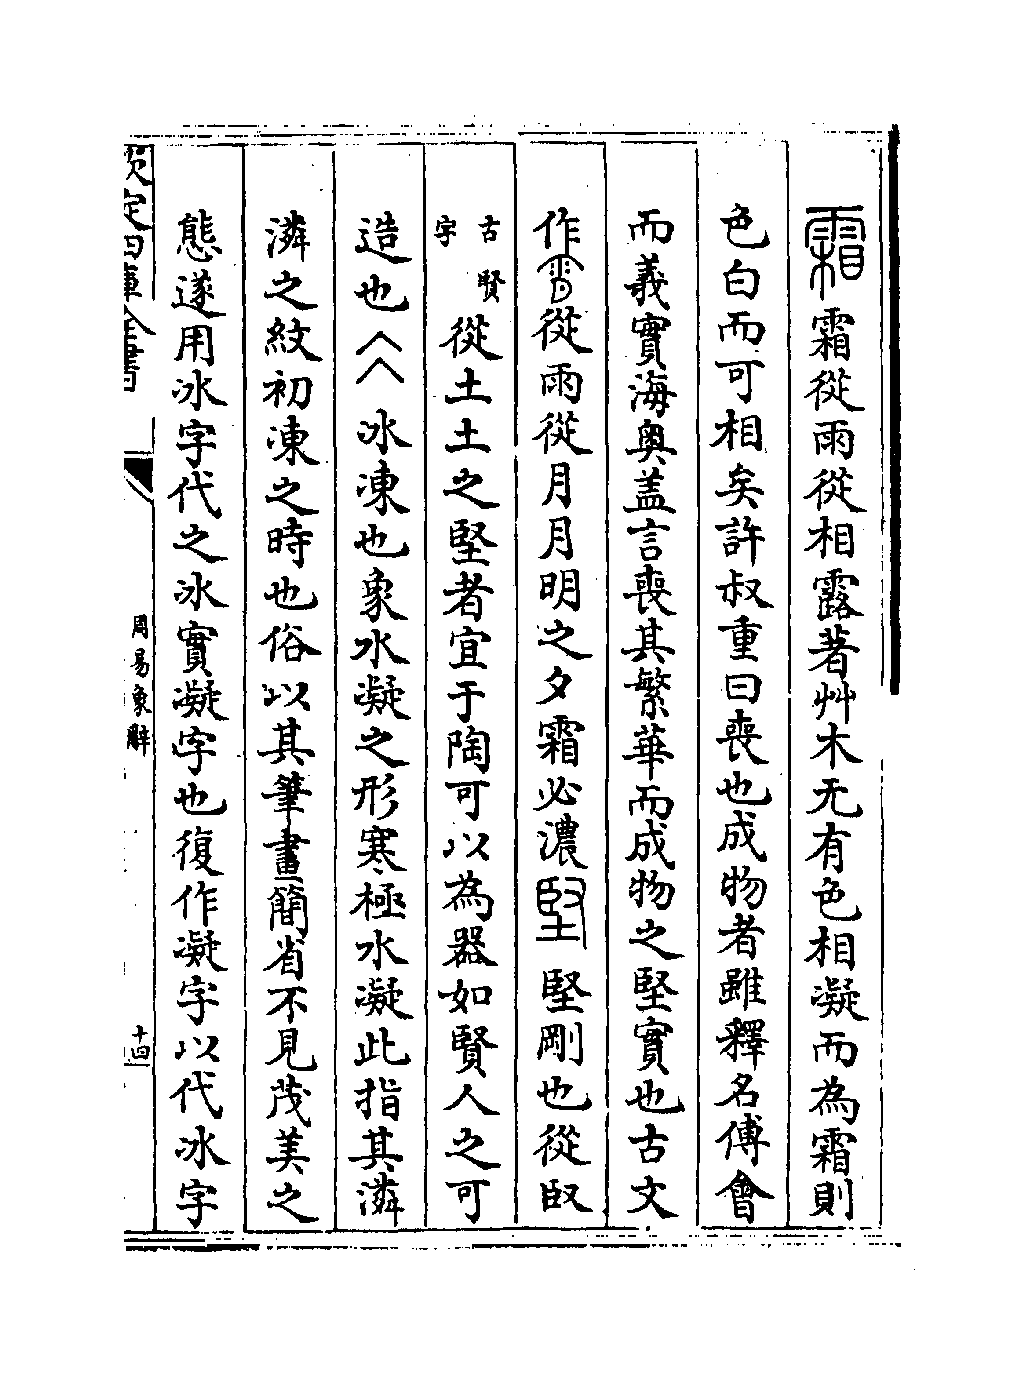 霜霜從雨從相露著艸木无有色相凝而為霜則
色白而可相矣許叔重曰喪也成物者雖釋名傅會
而義實海奥盖言喪其繁華而成物之堅實也古文
作從雨從月月明之夕霜必濃堅堅剛也從臤
古賢字從土土之堅者宜于陶可以為器如賢人之可
造也仌冰凍也象水凝之形寒極水凝此指其潾
潾之紋初凍之時也俗以其筆畫簡省不見茂美之
態遂用冰字代之冰實凝字也復作凝字以代冰字
欽定四庫全書
周易象辭
十四